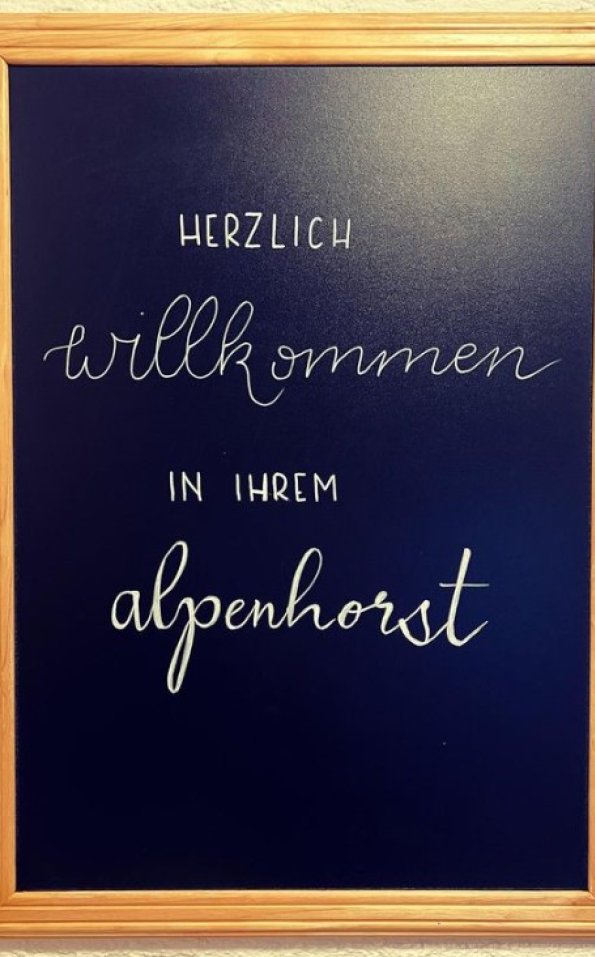 HERZLICH
willkommen
IN IHREM
alpenhorst